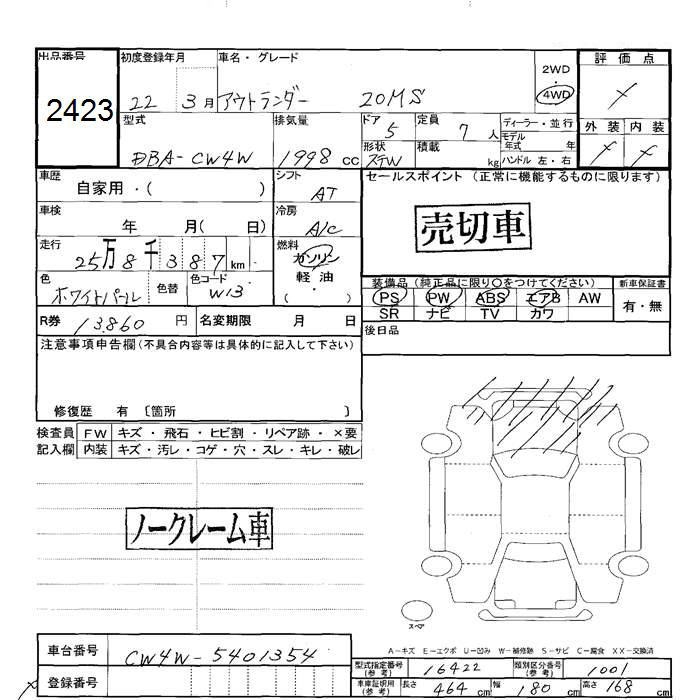 出品番号 初度登録年月 車名・グレード 2WD 評価点
2423 22 3月 アウトランダー 20MS 4WD
型式 排気量 ドア 5 定員 7人 ディーラー・並行 外装 内装
モデル年式 年
DBA-CW4W 1998cc 形状 STW 積載 kg ハンドル 左・右
車歴 自家用・( ) シフト AT セールスポイント(正常に機能するものに限ります)
車検 年 月( 日) 冷房 A/C 売切車
走行 25万8千387km 燃料 ガソリン 軽油 ( ・ )
色 ホワイトパール 色替 色コード W13 装備品(純正品に限り○をつけてください) 新車保証書
PS PW ABS エアB AW 有・無
SR ナビ TV カワ
R券 13860円 名変期限 月 日 後日品
注意事項申告欄(不具合内容等は具体的に記入して下さい)
修復歴 有 〔箇所 〕
検査員 FW キズ・飛石・ヒビ割・リペア跡・×要
記入欄 内装 キズ・汚レ・コゲ・穴・スレ・キレ・破レ
ノークレーム車
スペア
A-キズ E-エクボ U-凹み W-補修跡 S-サビ C-腐食 XX-交換済
車台番号 CW4W-5401354 型式指定番号(参考) 16422 類別区分番号(参考) 1001
登録番号 車庫証明用(参考) 長さ 464cm 幅 180cm 高さ 168cm